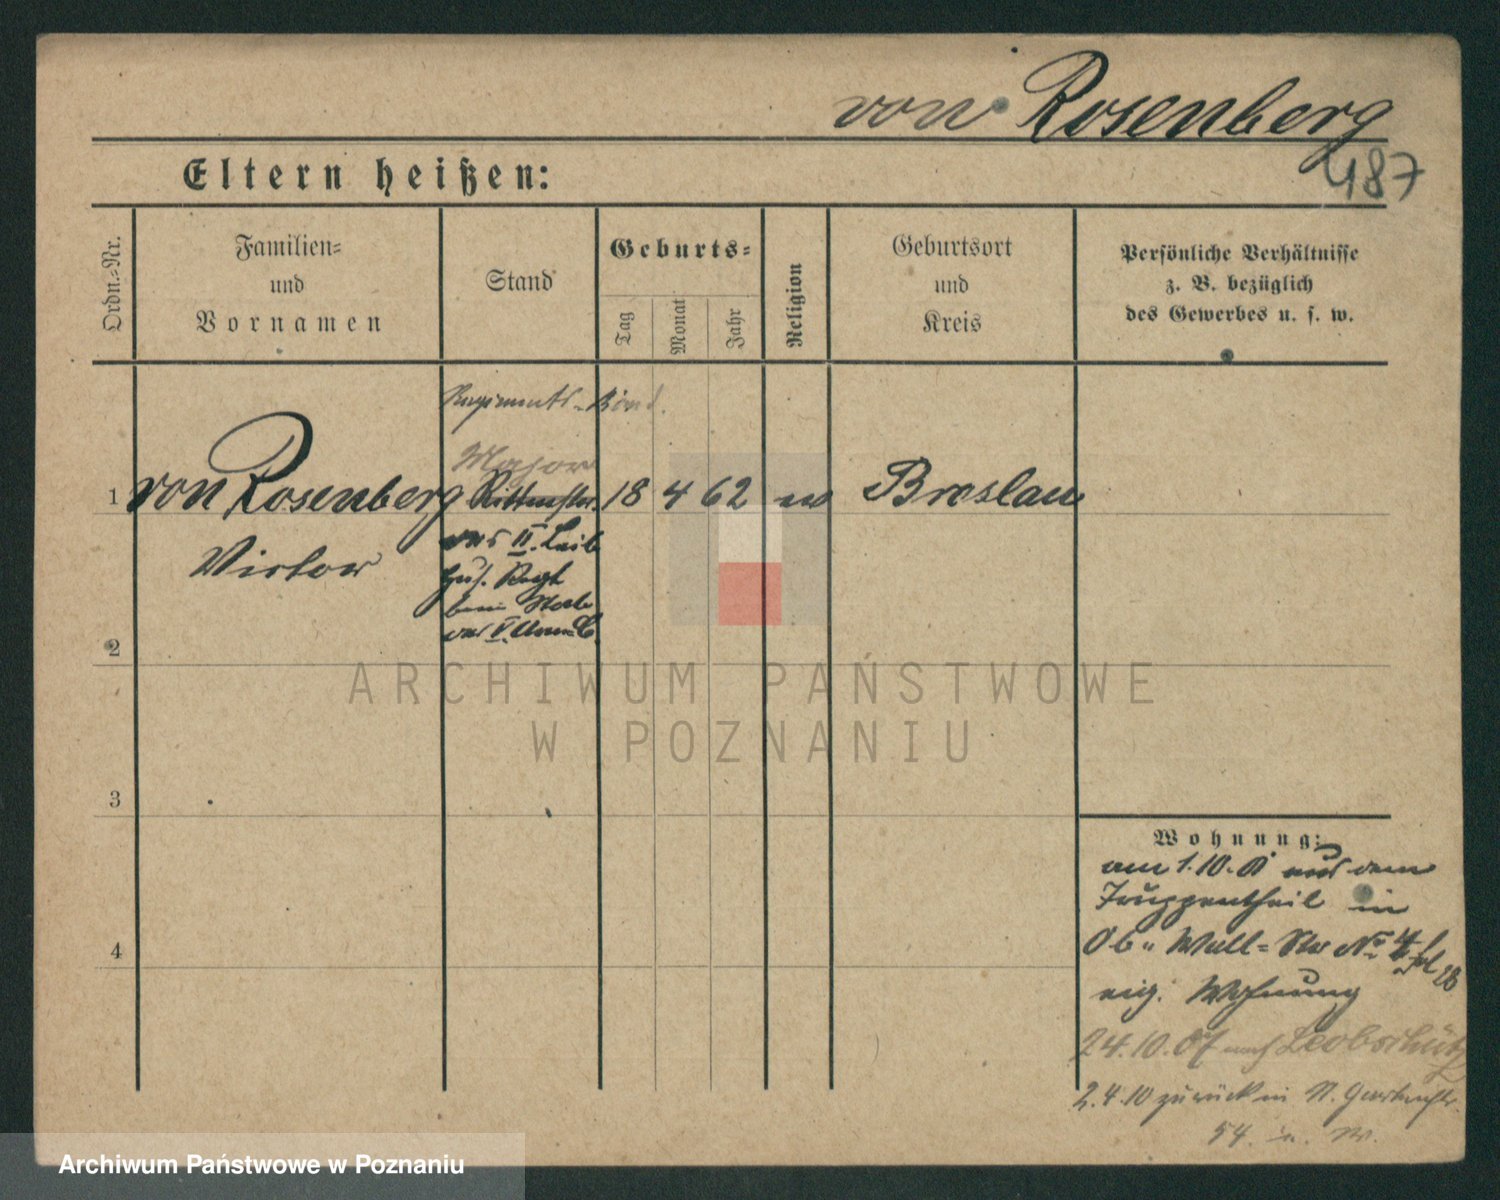 von Rosenberg
487
Eltern heißen:
Ordn.-Nr.
Familien-
und
Vornamen
Stand
Geburts-
Tag
Monat
Jahr
Religion
Geburtsort
und
Kreis
Persönliche Verhältnisse
z. B. bezüglich
des Gewerbes u. s. w.
Regiments-
Major
1
von Rosenberg
Rittmstr.
18
4
62
Breslau
Victor
II. Leib
Hus. Regt
beim Stabe
V.
2
3
4
Wohnung:
am 1.10. aus dem
Truppentheil in
Ob. Wall-Str No 4
eig. Wohnung
24.10.07 nach Leobschütz
2.4.10 zurück in N. Gartenstr.
54.
ARCHIWUM PAŃSTWOWE
W POZNANIU
Archiwum Państwowe w Poznaniu